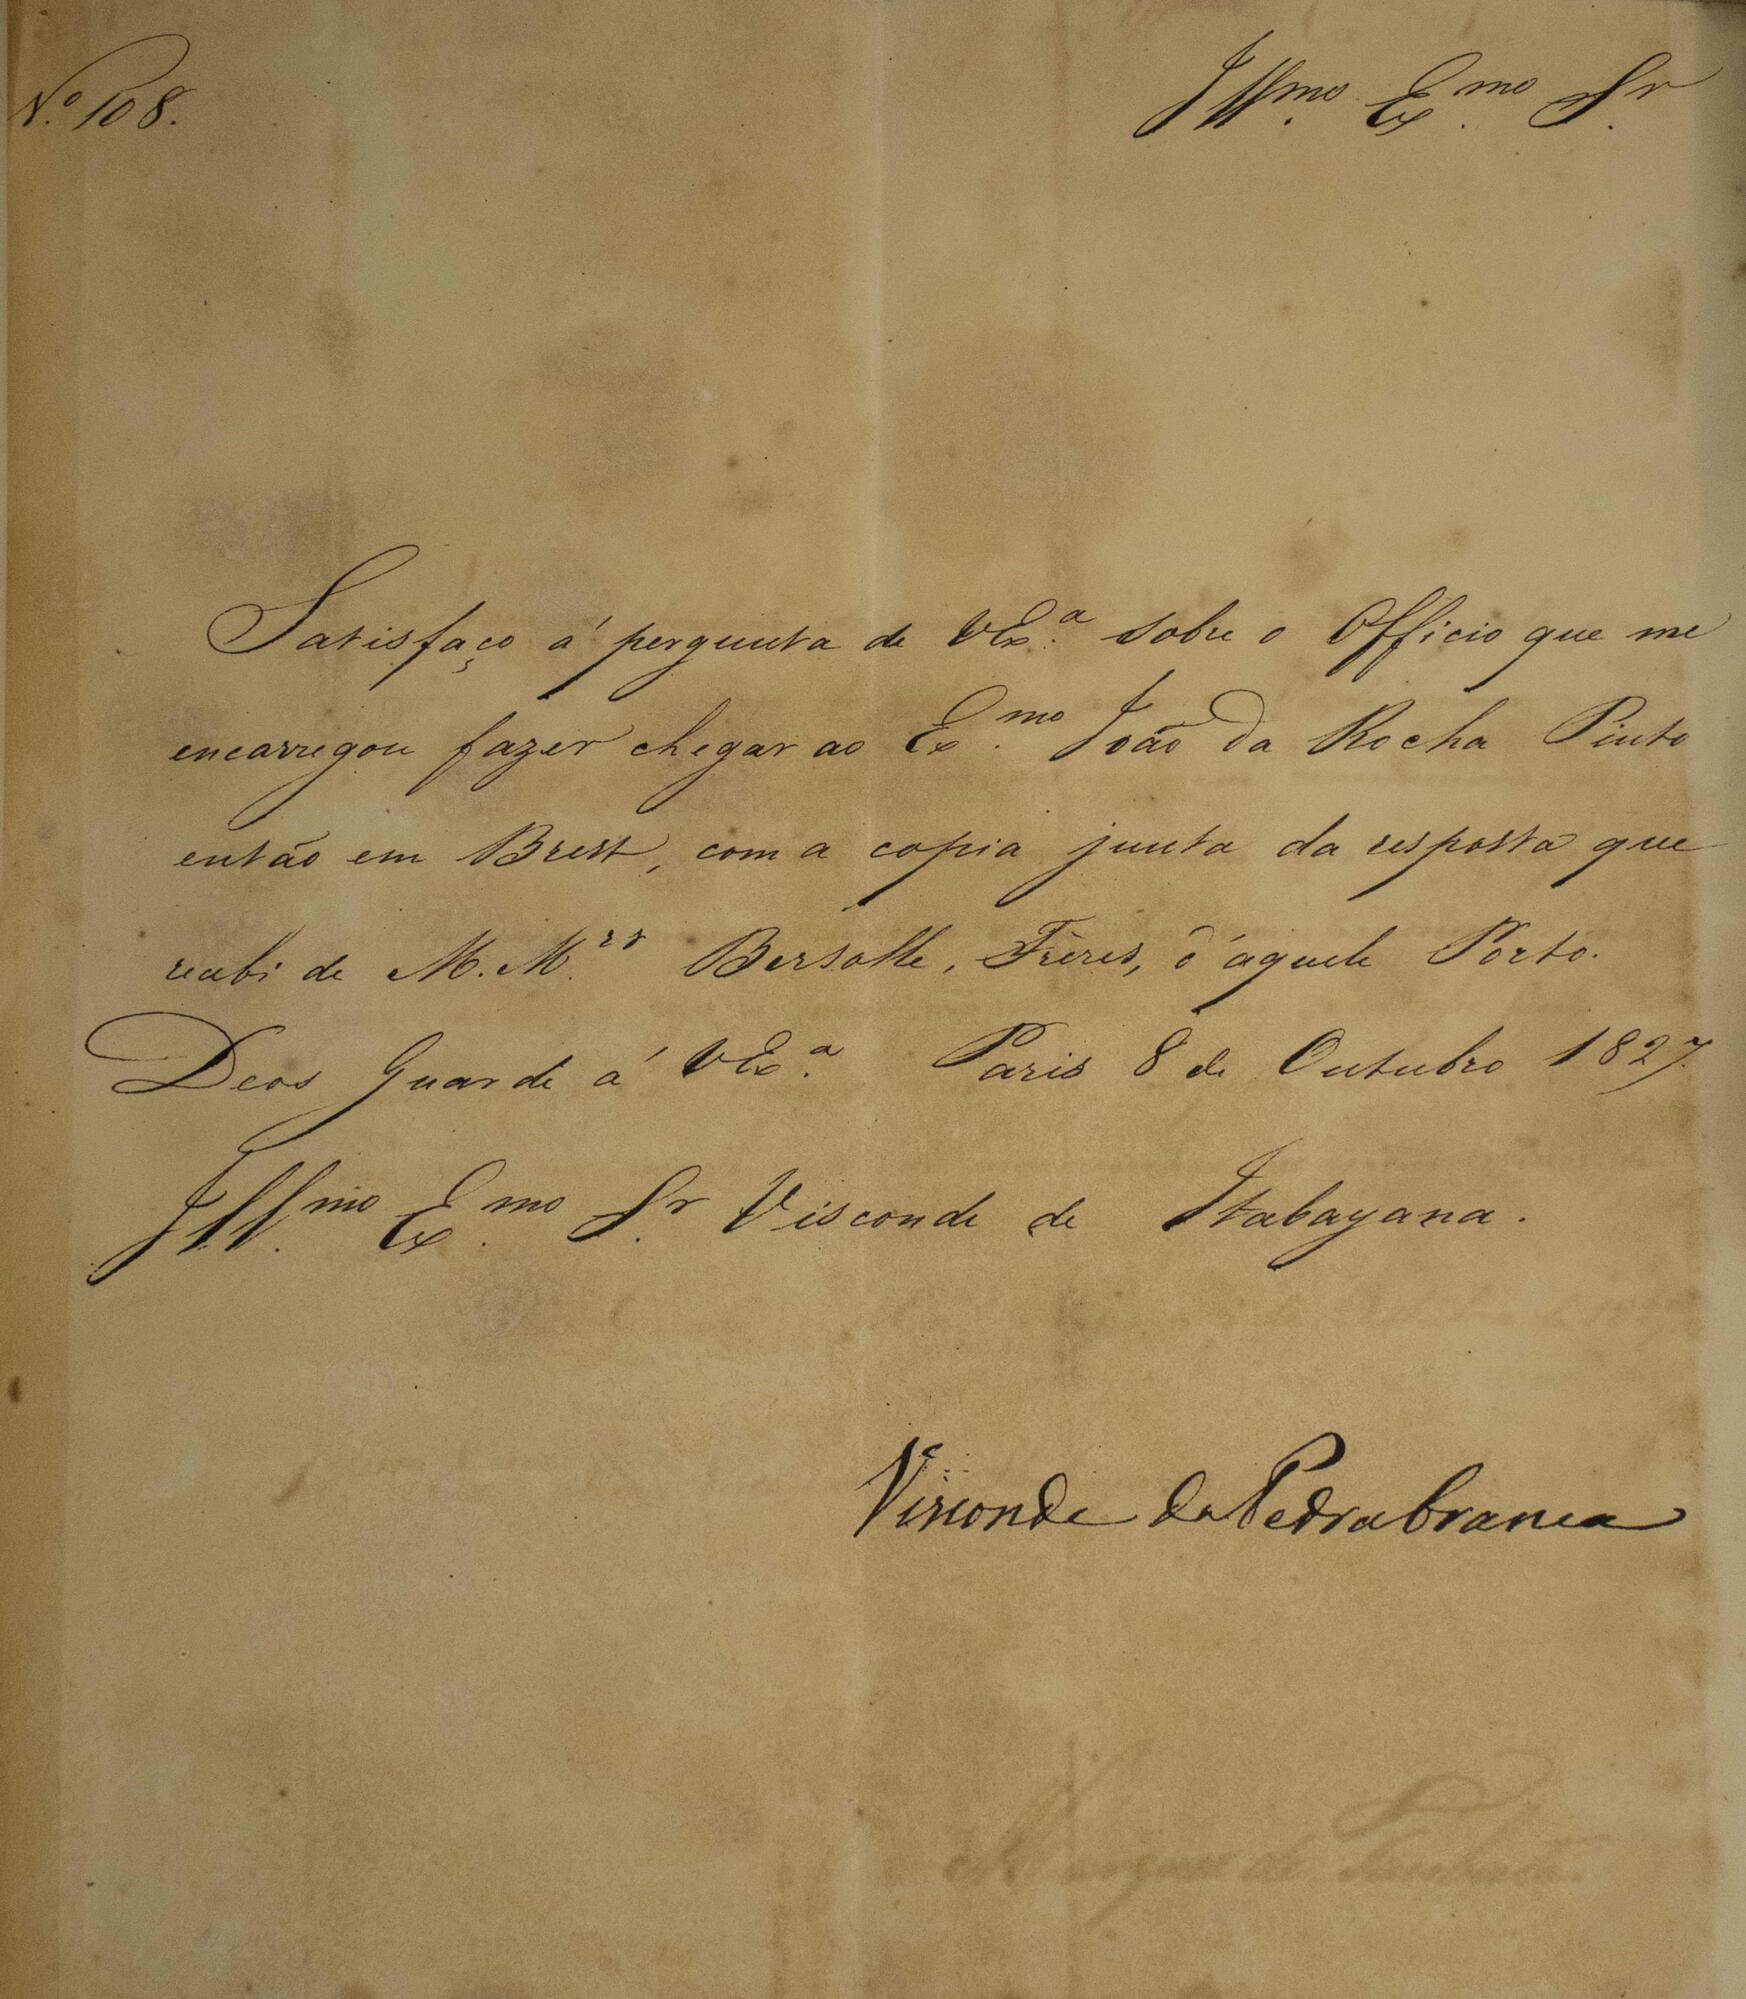 Nº. 108.
Illmo. Exmo. Sr.
Satisfaço á pergunta de VExa. sobre o Officio que me
encarregou fazer chegar ao Exmo. João da Rocha Pinto
então em Brest, com a copia junta da resposta que
recebi de M. Mrs. Bersolle, Frères, d'aquele Porto.
Deos Guarde á VExa. Paris 8 de Outubro 1827.
Illmo. Exmo. Sr. Visconde de Itabayana.
Visconde da Pedra branca